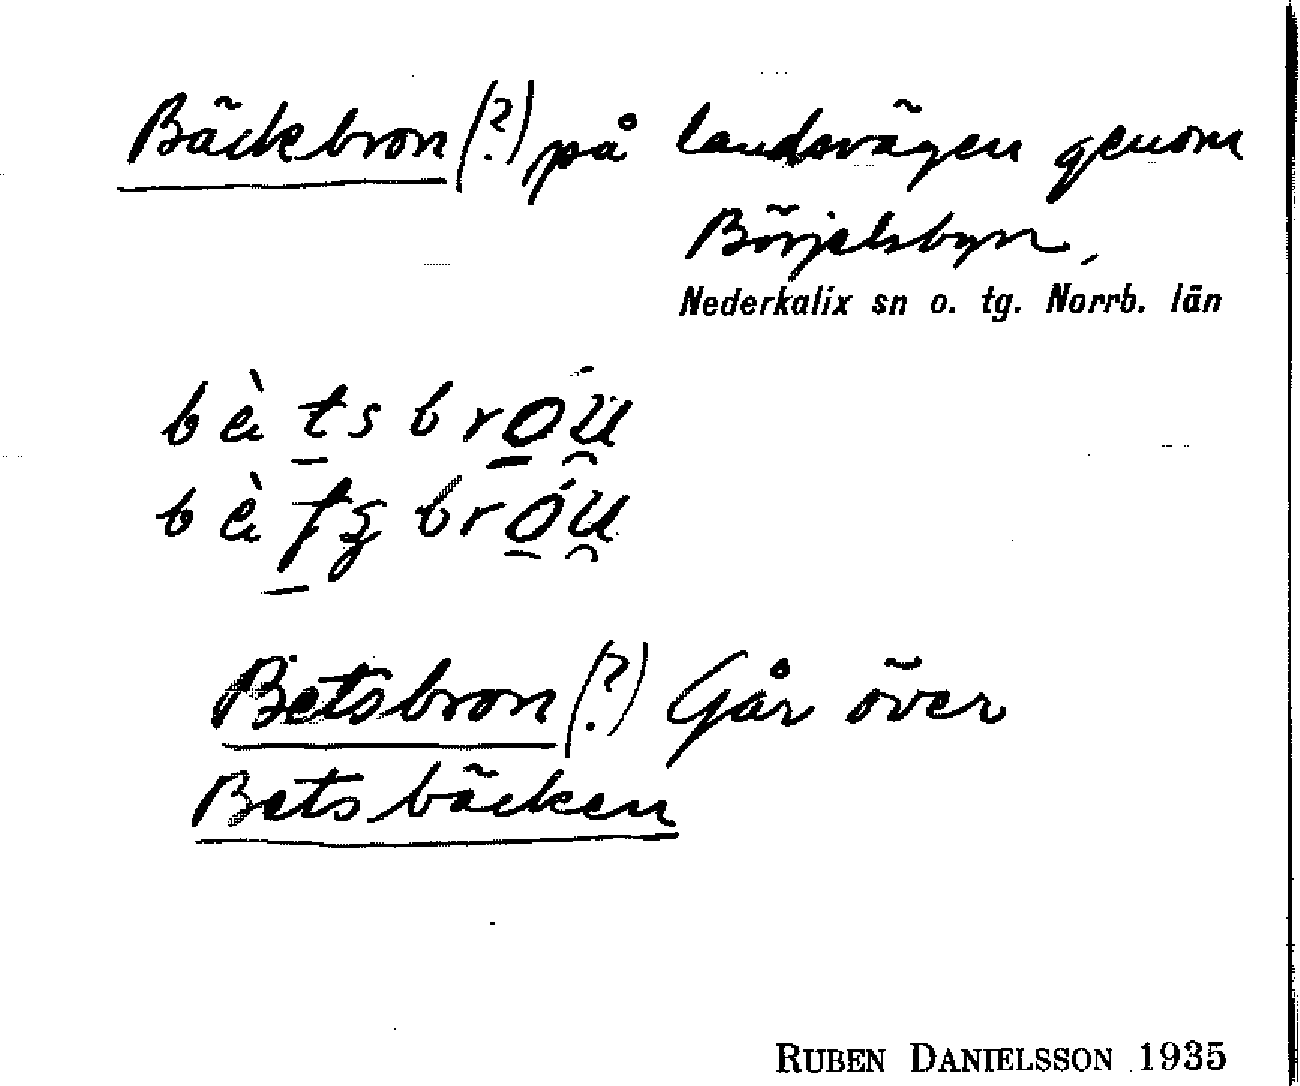 Bäckbron (?) på landsvägen genom
Börjelsbyn,
Nederkalix sn o. tg. Norrb. län
bètsbro̱u̯
Betsbron (?) Går över
Betsbäcken
RUBEN DANIELSSON 1935